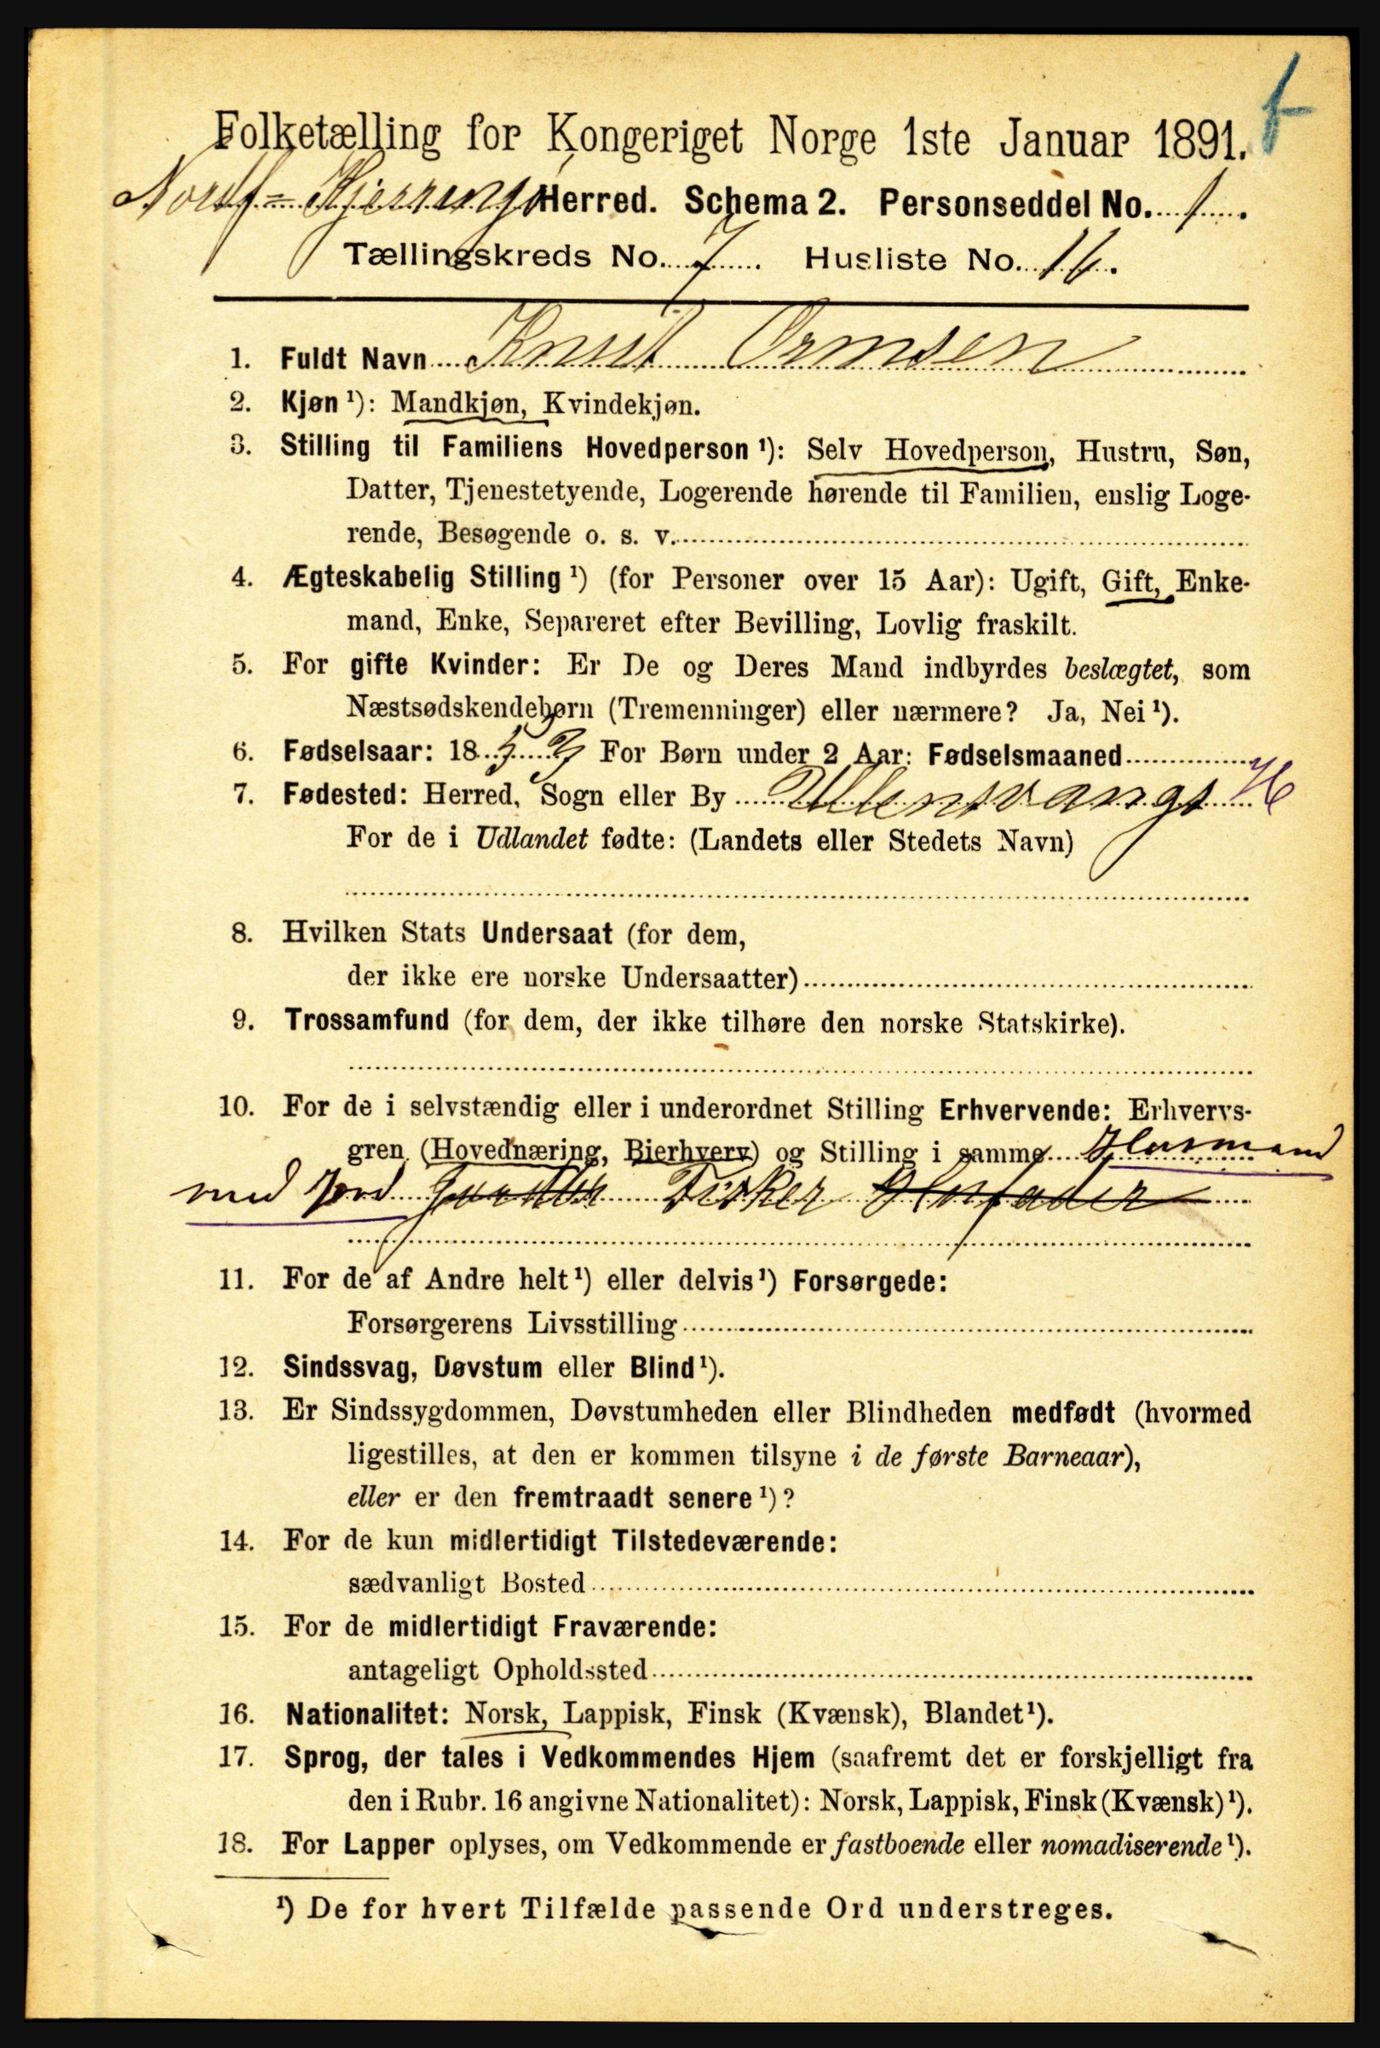 Folketælling for Kongeriget Norge 1ste Januar 1891.
Nordf=Kjerringø Herred. Schema 2. Personseddel No. 1.
Tællingskreds No. 7. Husliste No. 16.
1. Fuldt Navn Knut Ormsen
2. Kjøn ¹): Mandkjøn, Kvindekjøn.
3. Stilling til Familiens Hovedperson ¹): Selv Hovedperson, Hustru, Søn,
Datter, Tjenestetyende, Logerende hørende til Familien, enslig Loge-
rende, Besøgende o. s. v.
4. Ægteskabelig Stilling ¹) (for Personer over 15 Aar): Ugift, Gift, Enke-
mand, Enke, Separeret efter Bevilling, Lovlig fraskilt.
5. For gifte Kvinder: Er De og Deres Mand indbyrdes beslægtet, som
Næstsødskendebørn (Tremenninger) eller nærmere? Ja, Nei ¹).
6. Fødselsaar: 18 For Børn under 2 Aar: Fødselsmaaned
7. Fødested: Herred, Sogn eller By Ullensvangs H
For de i Udlandet fødte: (Landets eller Stedets Navn)
8. Hvilken Stats Undersaat (for dem,
der ikke ere norske Undersaatter)
9. Trossamfund (for dem, der ikke tilhøre den norske Statskirke).
10. For de i selvstændig eller i underordnet Stilling Erhvervende: Erhvervs-
gren (Hovednæring, Bierhverv) og Stilling i samme Husmand
med Jord Fisker
11. For de af Andre helt ¹) eller delvis ¹) Forsørgede:
Forsørgerens Livsstilling
12. Sindssvag, Døvstum eller Blind ¹).
13. Er Sindssygdommen, Døvstumheden eller Blindheden medfødt (hvormed
ligestilles, at den er kommen tilsyne i de første Barneaar),
eller er den fremtraadt senere ¹)?
14. For de kun midlertidigt Tilstedeværende:
sædvanligt Bosted
15. For de midlertidigt Fraværende:
antageligt Opholdssted
16. Nationalitet: Norsk, Lappisk, Finsk (Kvænsk), Blandet ¹).
17. Sprog, der tales i Vedkommendes Hjem (saafremt det er forskjelligt fra
den i Rubr. 16 angivne Nationalitet): Norsk, Lappisk, Finsk (Kvænsk) ¹).
18. For Lapper oplyses, om Vedkommende er fastboende eller nomadiserende ¹).
¹) De for hvert Tilfælde passende Ord understreges.